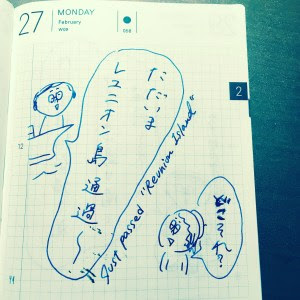 27
MONDAY
February
wee
058
2
12
ただいま
レユニオン島通過〜
Just passed "Reunion Island"
どこそれ?